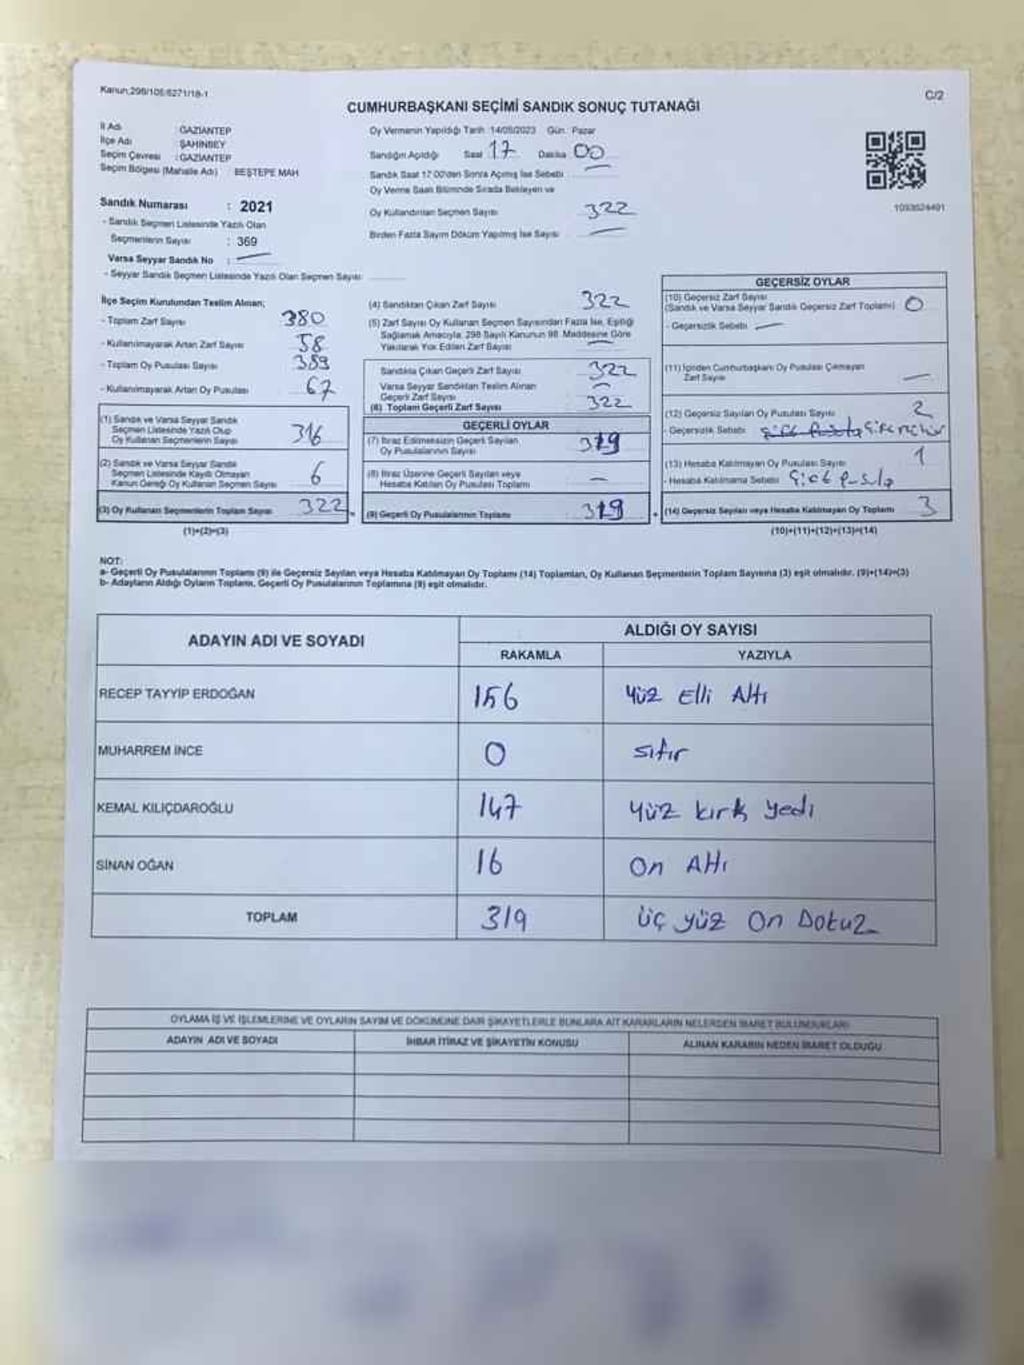 Kanun;298/105/6271/18-1
C/2
CUMHURBAŞKANI SEÇİMİ SANDIK SONUÇ TUTANAĞI
İl Adı : GAZİANTEP
İlçe Adı : ŞAHİNBEY
Seçim Çevresi : GAZİANTEP
Seçim Bölgesi (Mahalle Adı) : BEŞTEPE MAH
Sandık Numarası : 2021
- Sandık Seçmen Listesinde Yazılı Olan
Seçmenlerin Sayısı : 369
Varsa Seyyar Sandık No :
- Seyyar Sandık Seçmen Listesinde Yazılı Olan Seçmen Sayısı
Oy Vermenin Yapıldığı Tarih :14/05/2023 Gün : Pazar
Sandığın Açıldığı Saat 17 Dakika 00
Sandık Saat 17:00'den Sonra Açılmış İse Sebebi
Oy Verme Saati Bitiminde Sırada Bekleyen ve
Oy Kullandırılan Seçmen Sayısı 322
Birden Fazla Sayım Döküm Yapılmış İse Sayısı
1093624491
İlçe Seçim Kurulundan Teslim Alınan;
- Toplam Zarf Sayısı 380
- Kullanılmayarak Artan Zarf Sayısı 58
- Toplam Oy Pusulası Sayısı 389
- Kullanılmayarak Artan Oy Pusulası 67
(1) Sandık ve Varsa Seyyar Sandık
Seçmen Listesinde Yazılı Olup
Oy Kullanan Seçmenlerin Sayısı 316
(2) Sandık ve Varsa Seyyar Sandık
Seçmen Listesinde Kayıtlı Olmayan
Kanun Gereği Oy Kullanan Seçmen Sayısı 6
(3) Oy Kullanan Seçmenlerin Toplam Sayısı 322
(1)+(2)=(3)
(4) Sandıktan Çıkan Zarf Sayısı 322
(5) Zarf Sayısı Oy Kullanan Seçmen Sayısından Fazla İse, Eşitliği
Sağlamak Amacıyla, 298 Sayılı Kanunun 98. Maddesine Göre
Yakılarak Yok Edilen Zarf Sayısı
Sandıkta Çıkan Geçerli Zarf Sayısı 322
Varsa Seyyar Sandıktan Teslim Alınan
Geçerli Zarf Sayısı
(6) Toplam Geçerli Zarf Sayısı 322
GEÇERLİ OYLAR
(7) İtiraz Edilmeksizin Geçerli Sayılan
Oy Pusulalarının Sayısı 319
(8) İtiraz Üzerine Geçerli Sayılan veya
Hesaba Katılan Oy Pusulası Toplamı
(9) Geçerli Oy Pusulalarının Toplamı 319
GEÇERSİZ OYLAR
(10) Geçersiz Zarf Sayısı
(Sandık ve Varsa Seyyar Sandık Geçersiz Zarf Toplamı) 0
- Geçersizlik Sebebi
(11) İçinden Cumhurbaşkanı Oy Pusulası Çıkmayan
Zarf Sayısı
(12) Geçersiz Sayılan Oy Pusulası Sayısı 2
- Geçersizlik Sebebi
(13) Hesaba Katılmayan Oy Pusulası Sayısı 1
- Hesaba Katılmama Sebebi Çift Pusula
(14) Geçersiz Sayılan veya Hesaba Katılmayan Oy Toplamı 3
(10)+(11)+(12)+(13)=(14)
NOT:
a- Geçerli Oy Pusulalarının Toplamı (9) ile Geçersiz Sayılan veya Hesaba Katılmayan Oy Toplamı (14) Toplamları, Oy Kullanan Seçmenlerin Toplam Sayısına (3) eşit olmalıdır. (9)+(14)=(3)
b- Adayların Aldığı Oyların Toplamı, Geçerli Oy Pusulalarının Toplamına (9) eşit olmalıdır.
ADAYIN ADI VE SOYADI ALDIĞI OY SAYISI
RAKAMLA YAZIYLA
RECEP TAYYİP ERDOĞAN 156 Yüz Elli Altı
MUHARREM İNCE 0 sıfır
KEMAL KILIÇDAROĞLU 147 Yüz kırk yedi
SİNAN OĞAN 16 On Altı
TOPLAM 319 üç yüz On Dokuz
OYLAMA İŞ VE İŞLEMLERİNE VE OYLARIN SAYIM VE DÖKÜMÜNE DAİR ŞİKAYETLERLE BUNLARA AİT KARARLARIN NELERDEN İBARET BULUNDUKLARI
ADAYIN ADI VE SOYADI İHBAR İTİRAZ VE ŞİKAYETİN KONUSU ALINAN KARARIN NEDEN İBARET OLDUĞU